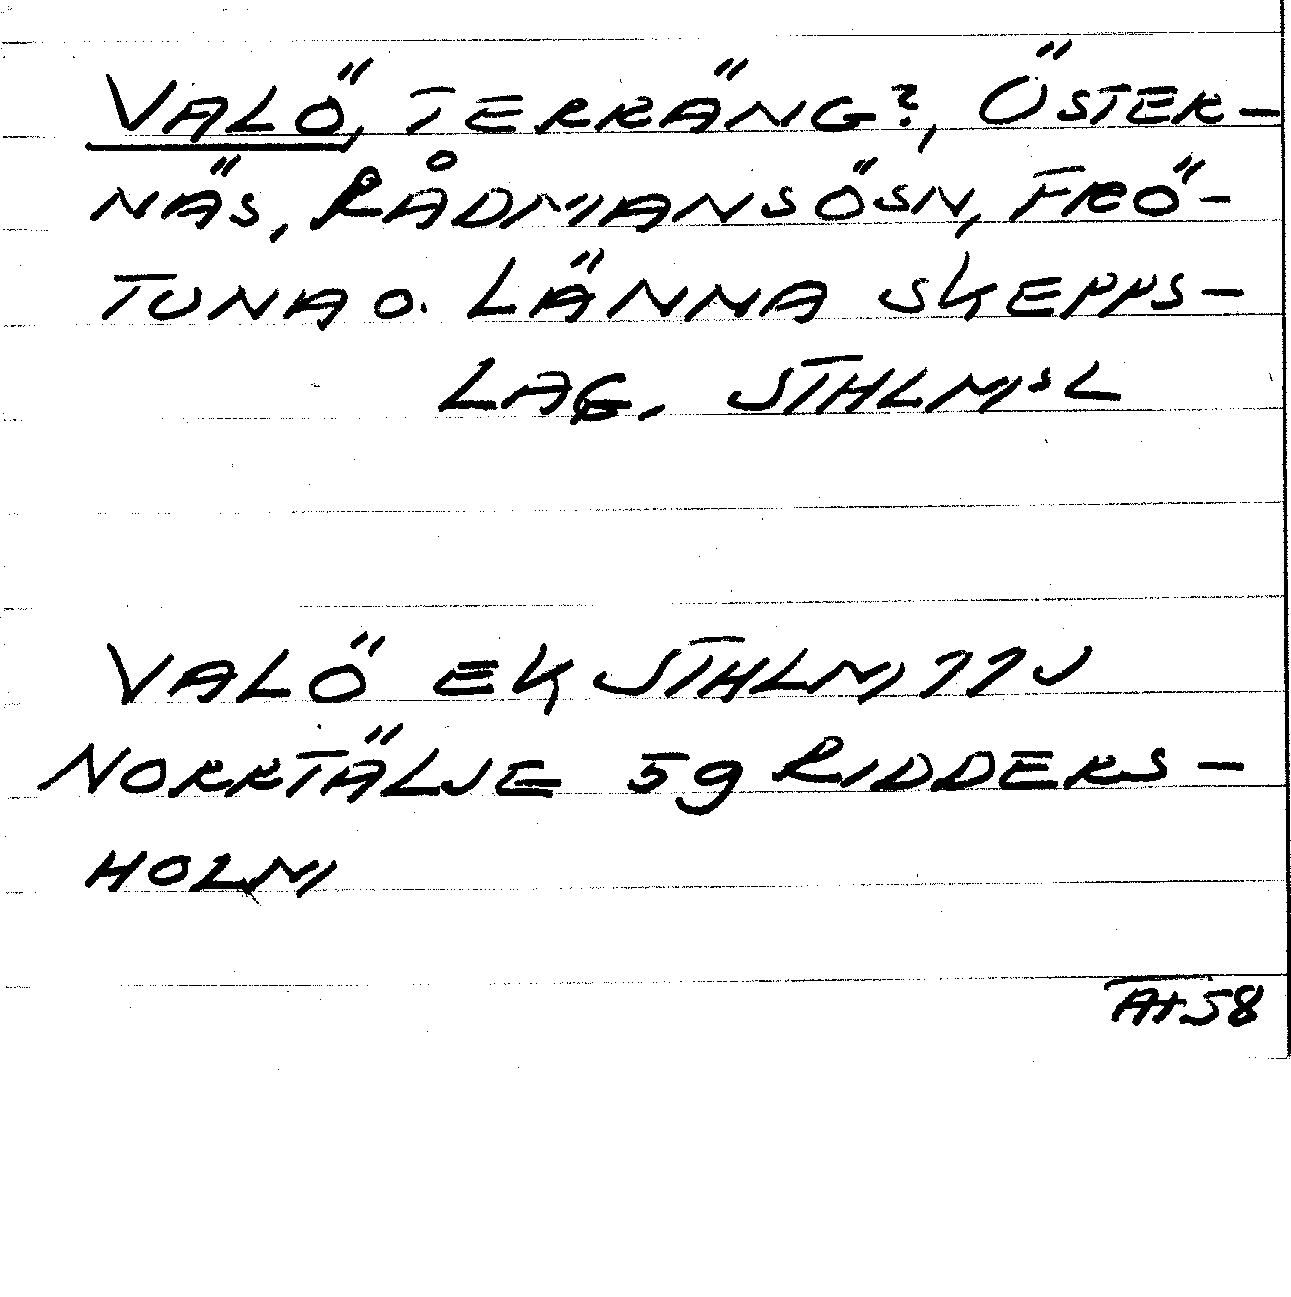 VALÖ, TERRÄNG?, ÖSTER-
NÄS, RÅDMANSÖSN, FRÖ-
TUNA O. LÄNNA SKEPPS-
LAG. STHLMS L
VALÖ EK STHLM 77J
NORRTÄLJE 59 RIDDERS-
HOLM
58